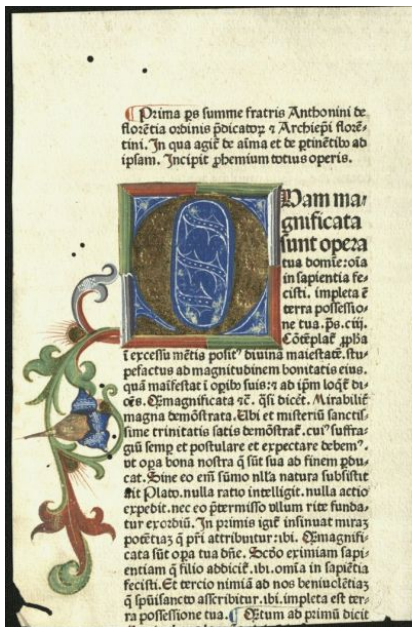 Prima ps summe fratris Anthonini de
florētia ordinis p̄dicatoꝝ ⁊ Archiep̄i florē-
tini. In qua agit̄ de aīma et de ꝑtinētib⁹ ad
ipsam. Incipit ꝓhemium totius operis.
Quam ma-
gnificata
sunt opera
tua domīe: oīa
in sapientia fe-
cisti. impleta ē
terra possessio-
ne tua. ps. ciij.
Cōtēplat̄ ꝓph̄a
ī excessu mētis posit⁹ diuinā maiestatē. stu-
pefactus ad magnitudinem bonitatis eius.
quā māifestat ī oꝑib⁹ suis: ⁊ ad ip̄m loqt̄ di-
cēs. Q̄magnificata ⁊c̄. q̄si dicēt. Mirabilit̄
magna demōstrata. Ubi et misteriū sanctis-
sime trinitatis satis demōstrat̄. cui⁹ suffra-
giū semp et postulare et expectare debem⁹.
ut oꝑa bona nostra q̄ sūt sua ad finem ꝑdu-
cat. Sine eo em̄ sūmo nll'a natura subsistit
ait Plato. nulla ratio intelligit. nulla actio
expedit. nec eo p̄termisso vllum rite funda-
tur exordiū. In primis igit̄ insinuat miraȝ
potētiaȝ q̄ pri attribuitur: ibi. Q̄magnifi-
cata sūt oꝑa tua dn̄e. Scd̄o eximiam sapi-
entiam q̄ filio addicit̄. ibi. omīa in sapiētia
fecisti. Et tercio nimiā ad nos beniuolētiaȝ
q̄ spūisancto ascribitur. ibi. impleta est ter-
ra possessione tua. Q̄tum ad primū dicit